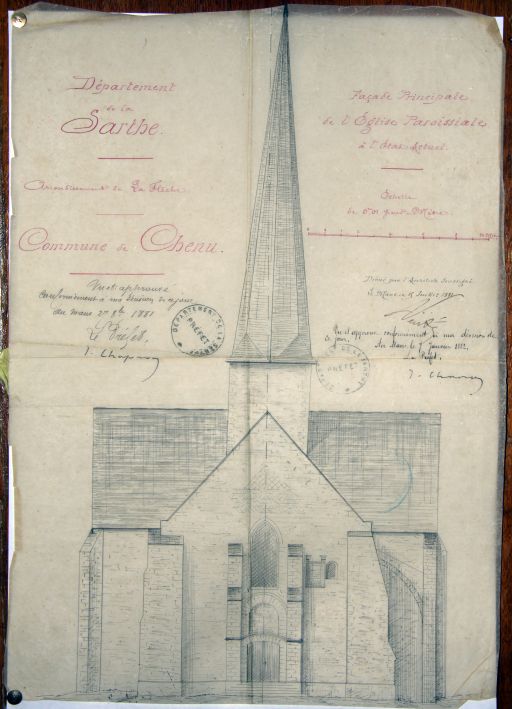 Département
de la
Sarthe.
Arrondissement de La Flèche
Commune de Chenu.
Vu et approuvé
conformément à ma décision de ce jour
du mans 1881
Le Préfet,
DÉPARTEMENT DE LA SARTHE
PRÉFET
Façade Principale
de l'Église Paroissiale
à l'état actuel.
Échelle
de 0.01 pour Mètre.
Dressé par l'Architecte soussigné
Vu et approuvé conformément à ma décision de
ce jour.
Au Mans, le 7 Janvier 1882.
Le Préfet,
PRÉFET